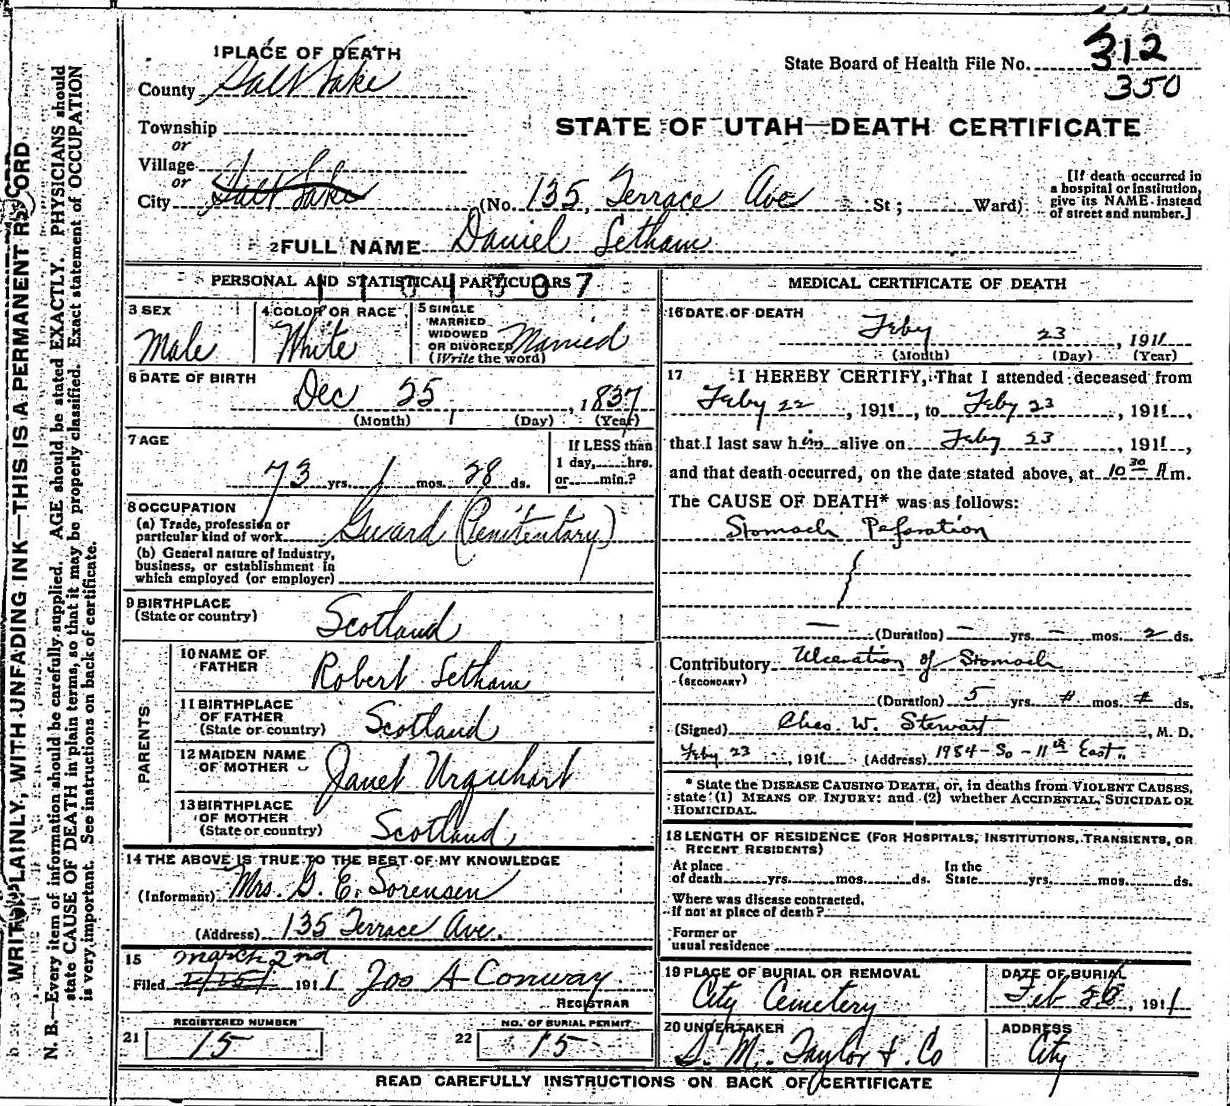 312
State Board of Health File No.
350
1 PLACE OF DEATH
County Salt Lake
STATE OF UTAH—DEATH CERTIFICATE
Township
or
Village
or
City Salt Lake (No. 135, Terrace Ave St; Ward)
[If death occurred in a hospital or institution, give its NAME instead of street and number.]
2 FULL NAME Daniel Letham
PERSONAL AND STATISTICAL PARTICULARS
3 SEX
Male
4 COLOR OR RACE
White
5 SINGLE
MARRIED
WIDOWED
OR DIVORCED
(Write the word)
Married
6 DATE OF BIRTH
Dec 25, 1837
(Month) (Day) (Year)
7 AGE
73 yrs. 1 mos. 28 ds.
If LESS than
1 day, hrs.
or min.?
8 OCCUPATION
(a) Trade, profession or
particular kind of work Guard (Penitentary)
(b) General nature of industry,
business, or establishment in
which employed (or employer)
9 BIRTHPLACE
(State or country) Scotland
PARENTS
10 NAME OF
FATHER Robert Letham
11 BIRTHPLACE
OF FATHER
(State or country) Scotland
12 MAIDEN NAME
OF MOTHER Janet Urquhart
13 BIRTHPLACE
OF MOTHER
(State or country) Scotland
14 THE ABOVE IS TRUE TO THE BEST OF MY KNOWLEDGE
(Informant) Mrs. G. E. Sorensen
(Address) 135 Terrace Ave.
15
Filed March 2nd 1911 Jos A Conway
REGISTRAR
REGISTERED NUMBER
21 15
NO. OF BURIAL PERMIT
22 15
MEDICAL CERTIFICATE OF DEATH
16 DATE OF DEATH
Feby 23, 1911
(Month) (Day) (Year)
17 I HEREBY CERTIFY, That I attended deceased from
Feby 22, 1911, to Feby 23, 1911,
that I last saw him alive on Feby 23, 1911,
and that death occurred, on the date stated above, at 10 30 A m.
The CAUSE OF DEATH* was as follows:
Stomach Peforation
(Duration) — yrs. — mos. 2 ds.
Contributory Ulceration of Stomach
(SECONDARY)
(Duration) 5 yrs. # mos. # ds.
(Signed) Chas. W. Stewart, M. D.
Feby 23, 1911 (Address) 1984 - So - 11th East.
* State the DISEASE CAUSING DEATH, or, in deaths from VIOLENT CAUSES,
state (1) MEANS OF INJURY: and (2) whether ACCIDENTAL, SUICIDAL OR
HOMICIDAL.
18 LENGTH OF RESIDENCE (FOR HOSPITALS, INSTITUTIONS, TRANSIENTS, OR
RECENT RESIDENTS)
At place
of death yrs. mos. ds.
In the
State yrs. mos. ds.
Where was disease contracted,
if not at place of death?
Former or
usual residence
19 PLACE OF BURIAL OR REMOVAL
City Cemetery
DATE OF BURIAL
Feb 1911
20 UNDERTAKER
S. M. Taylor & Co
ADDRESS
City
READ CAREFULLY INSTRUCTIONS ON BACK OF CERTIFICATE
WRITE PLAINLY, WITH UNFADING INK—THIS IS A PERMANENT RECORD.
N. B.—Every item of information should be carefully supplied. AGE should be stated EXACTLY. PHYSICIANS should
state CAUSE OF DEATH in plain terms, so that it may be properly classified. Exact statement of OCCUPATION
is very important. See instructions on back of certificate.